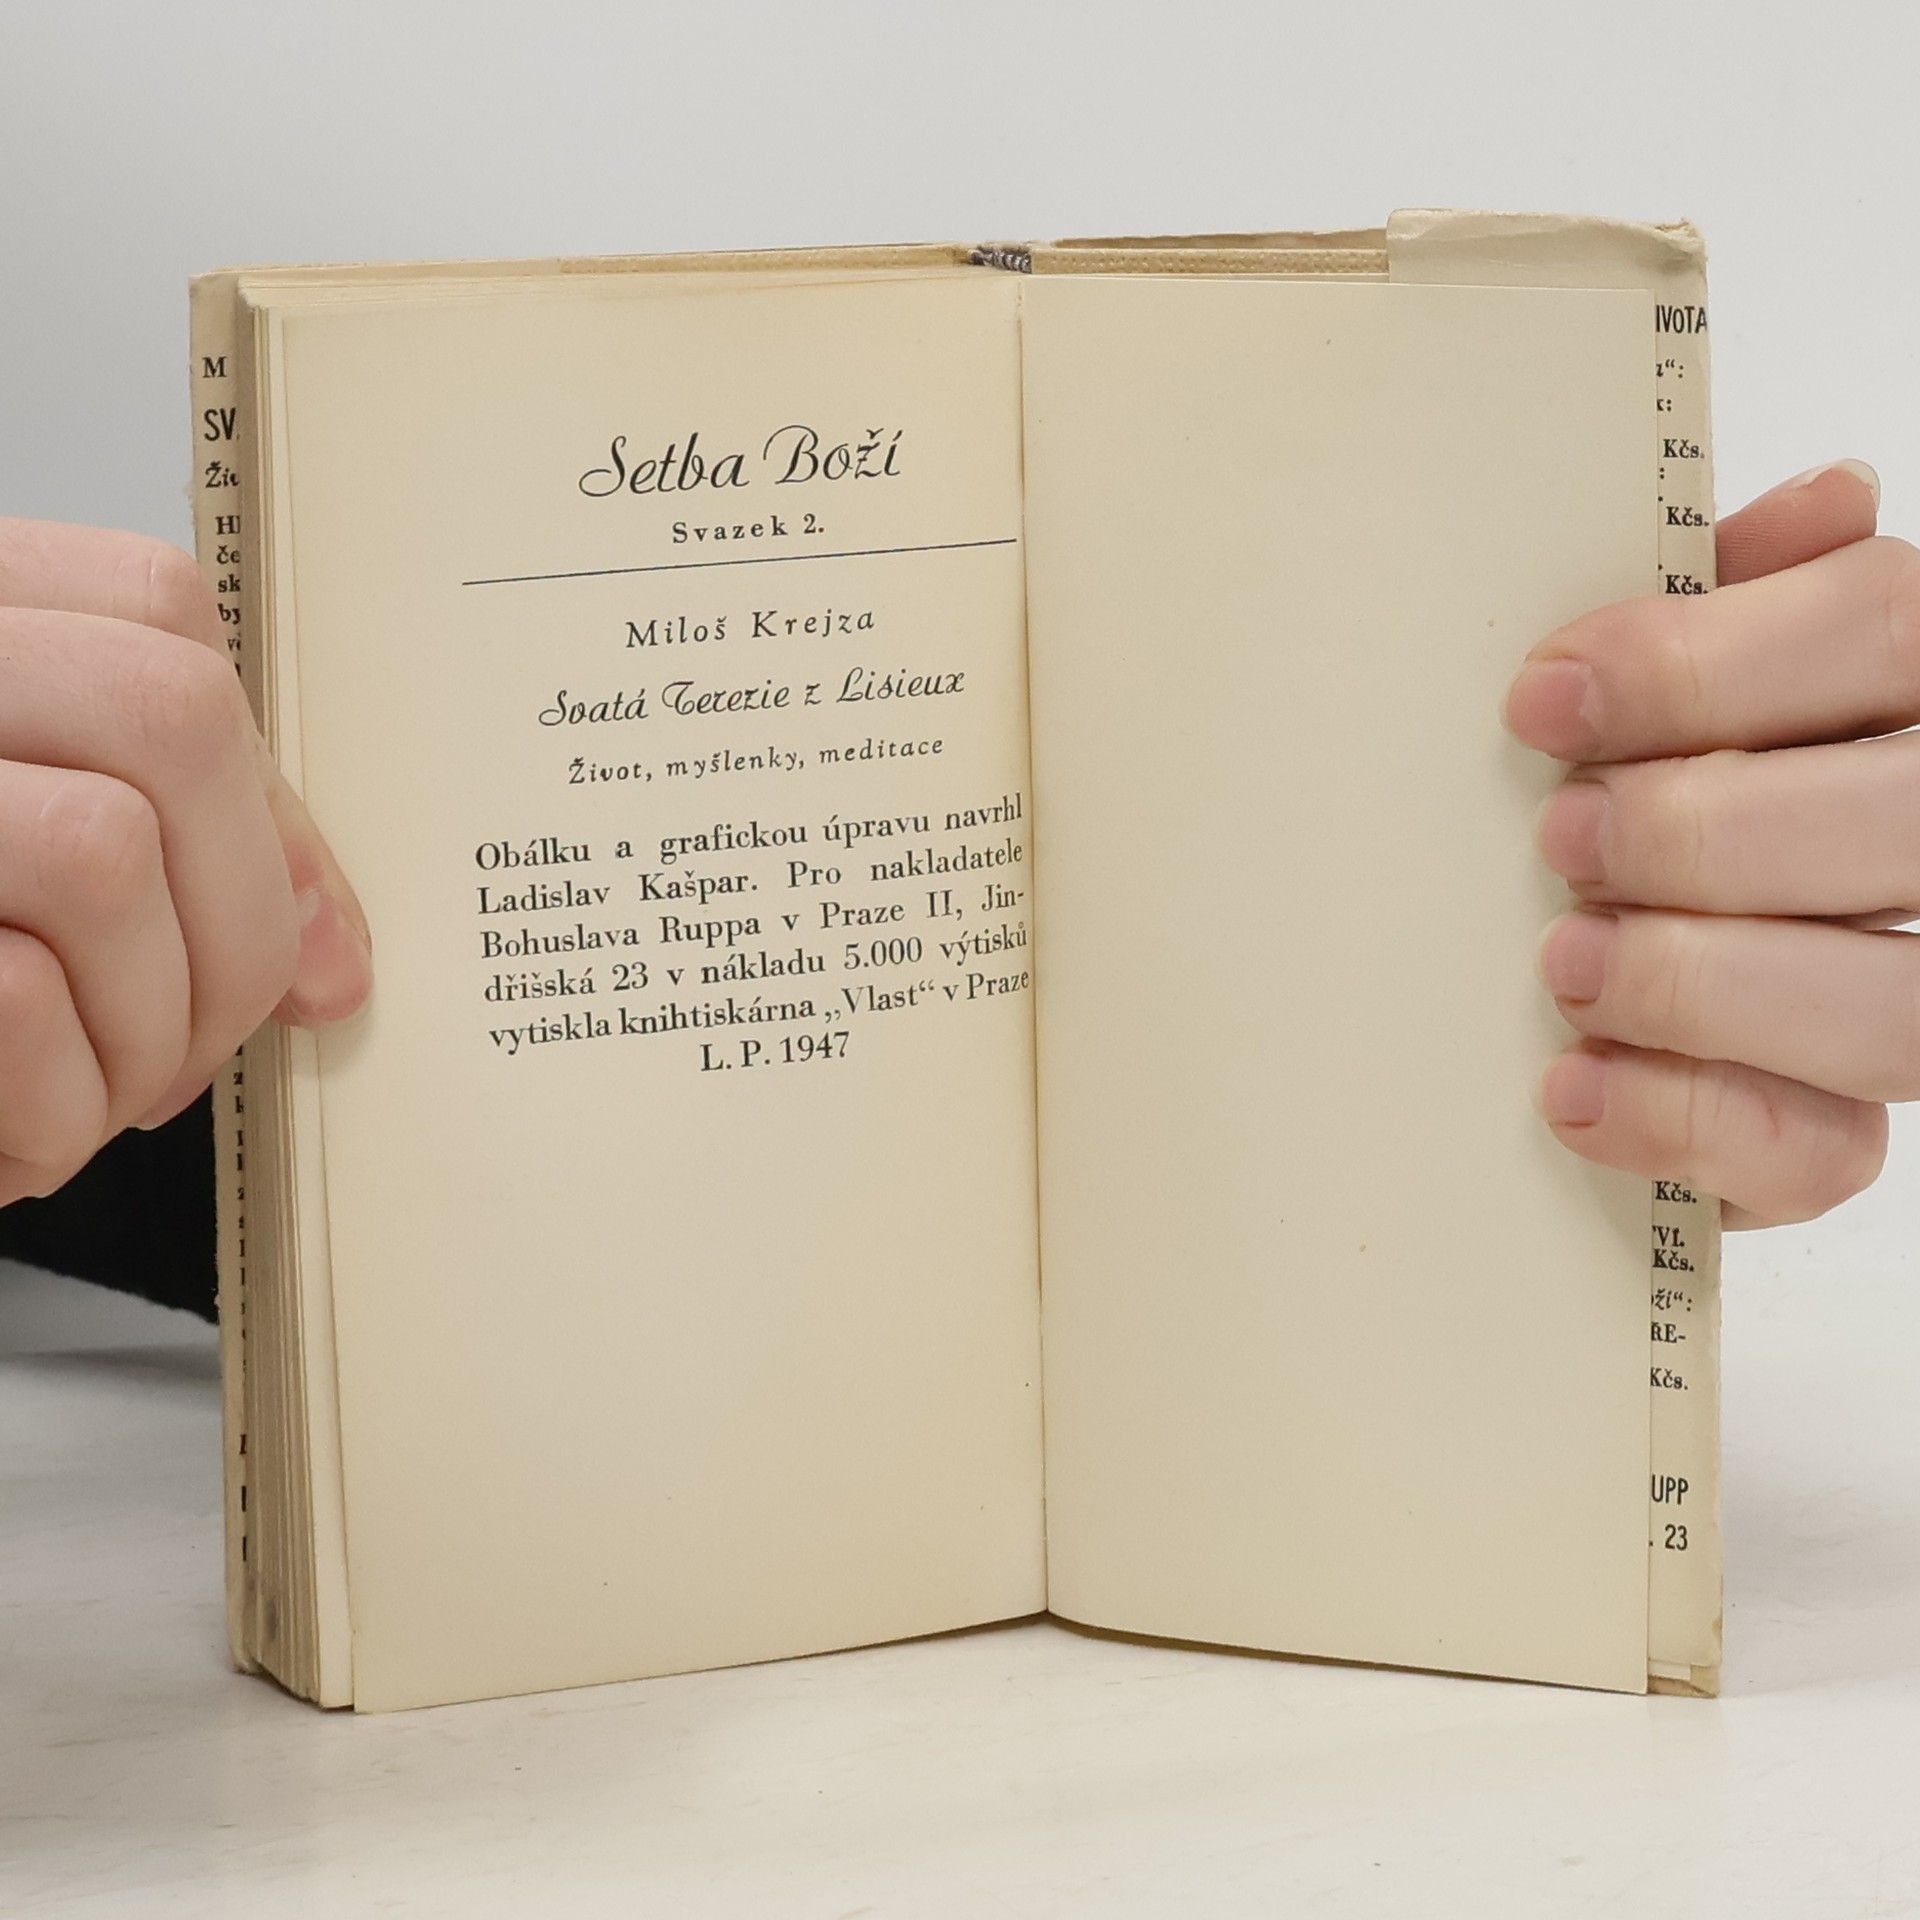 Setba Boží
Svazek 2.
Miloš Krejza
Svatá Terezie z Lisieux
Život, myšlenky, meditace
Obálku a grafickou úpravu navrhl
Ladislav Kašpar. Pro nakladatele
Bohuslava Ruppa v Praze II, Jin-
dřišská 23 v nákladu 5.000 výtisků
vytiskla knihtiskárna „Vlast“ v Praze
L. P. 1947
Kčs.
Kčs.
Kčs.
Kčs.
Kčs.
Kčs.
23